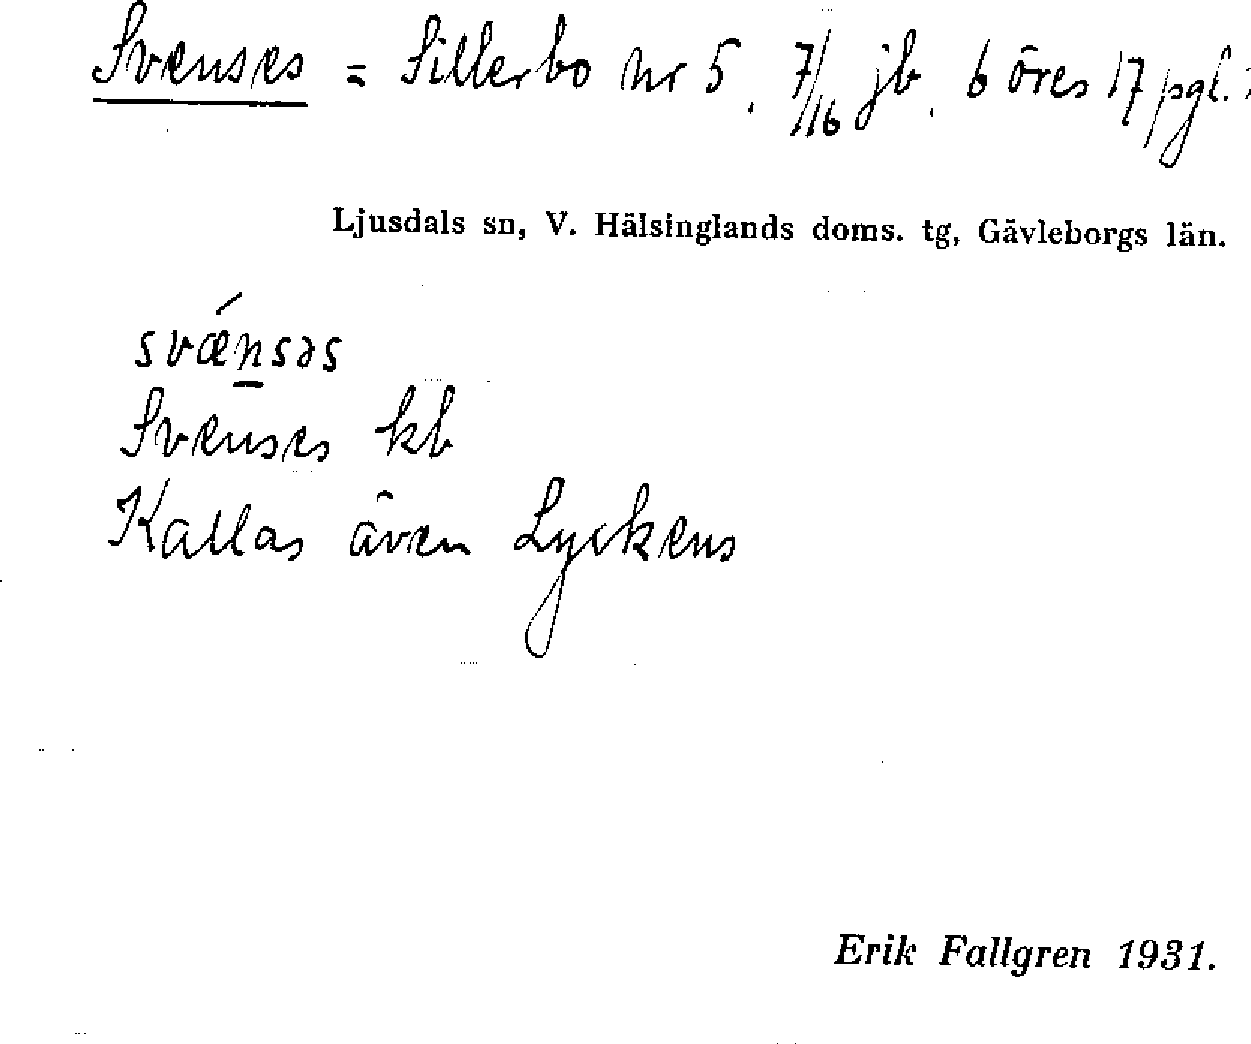 Svenses = Sillerbo nr 5. 7/16 jb. 6 öres 17 pgl.
Ljusdals sn, V. Hälsinglands doms. tg, Gävleborgs län.
svǽn̲səs
Svenses kb
Kallas även Lyckens
Erik Fallgren 1931.